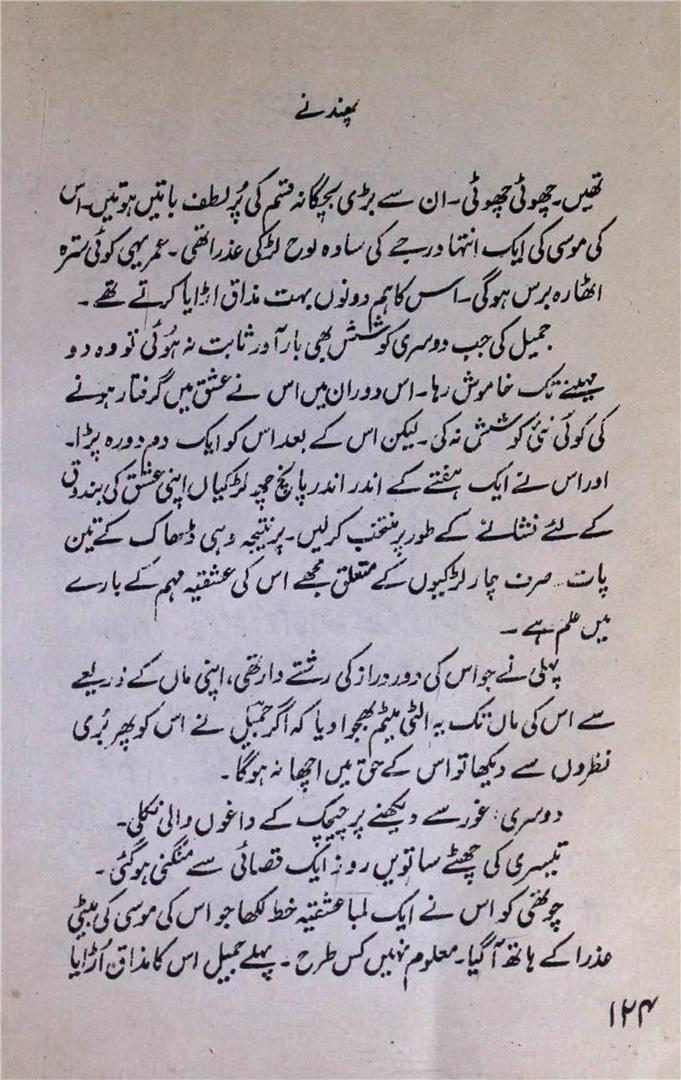 پھندنے
تھیں۔ چھوٹی چھوٹی۔ ان سے بڑی بچگانہ قسم کی پُر لطف باتیں ہوتیں۔ اس
کی موسی کی ایک انتہا درجے کی سادہ لوح لڑکی عذرا تھی۔ عمر یہی کوئی سترہ
اٹھارہ برس ہوگی۔ اس کا ہم دونوں بہت مذاق اڑایا کرتے تھے۔
جمیل کی جب دوسری کوشش بھی بار آور ثابت نہ ہُوئی تو وہ دو
مہینے تک خاموش رہا۔ اس دوران میں اس نے عشق میں گرفتار ہونے
کی کوئی نئی کوشش نہ کی۔ لیکن اس کے بعد اس کو ایک دم دورہ پڑا۔
اور اس نے ایک ہفتے کے اندر اندر پانچ چھ لڑکیاں اپنی عشق کی بندوق
کے لئے نشانے کے طور پر منتخب کر لیں۔ پر نتیجہ وہی ڈھاک کے تین
پات۔ صرف چار لڑکیوں کے متعلق مجھے اس کی عشقیہ مہم کے بارے
میں علم ہے۔
پہلی نے جو اس کی دور دراز کی رشتے دار تھی، اپنی ماں کے ذریعے
سے اس کی ماں تک یہ الٹی میٹم بھجوا دیا کہ اگر جمیل نے اس کو پھر بُری
نظروں سے دیکھا تو اس کے حق میں اچھا نہ ہوگا۔
دوسری؛ غور سے دیکھنے پر چیچک کے داغوں والی نکلی۔
تیسری کی چھٹے ساتویں روز ایک قصائی سے منگنی ہوگئی۔
چوتھی کو اس نے ایک لمبا عشقیہ خط لکھا جو اس کی موسی کی بیٹی
عذرا کے ہاتھ آ گیا۔ معلوم نہیں کس طرح۔ پہلے جمیل اس کا مذاق اُڑایا
۱۲۴